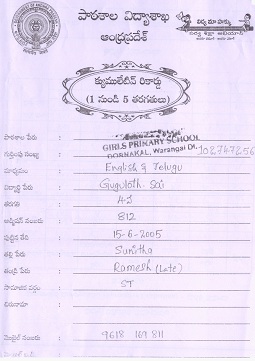 పాఠశాల విద్యాశాఖ
ఆంధ్రప్రదేశ్
క్యుములేటివ్ రికార్డు
(1 నుండి 5 తరగతులు)
పాఠశాల పేరు : GIRLS PRIMARY SCHOOL
DORNAKAL, Warangal Dt.
గుర్తింపు సంఖ్య :
మాధ్యమం : English & Telugu
విద్యార్థి పేరు : Guguloth. Sai
తరగతి :
అడ్మిషన్ నంబరు : 812
పుట్టిన తేది : 15-6-2005
తల్లి పేరు : Sunitha
తండ్రి పేరు : Ramesh (Late)
సామాజిక వర్గం : ST
చిరునామా :
మొబైల్ నంబరు : 9618 169 811